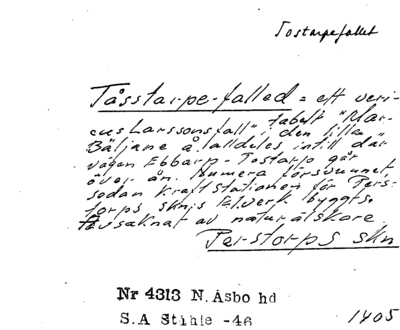 Tostarpefallet
Tåsstarpe-falled = ett veri-
tabelt "Mar-
cus Larssonsfall" i den lilla
Bäljane å, alldeles intill där
vägen Ebbarp-Tostarp går
över ån. Numera försvunnet
sedan kraftstationen för Pers-
torps skns Elverk byggts.
Försaknat av naturälskare.
Perstorps skn
Nr 4313 N. Åsbo hd
S.A Stihle -46
1405